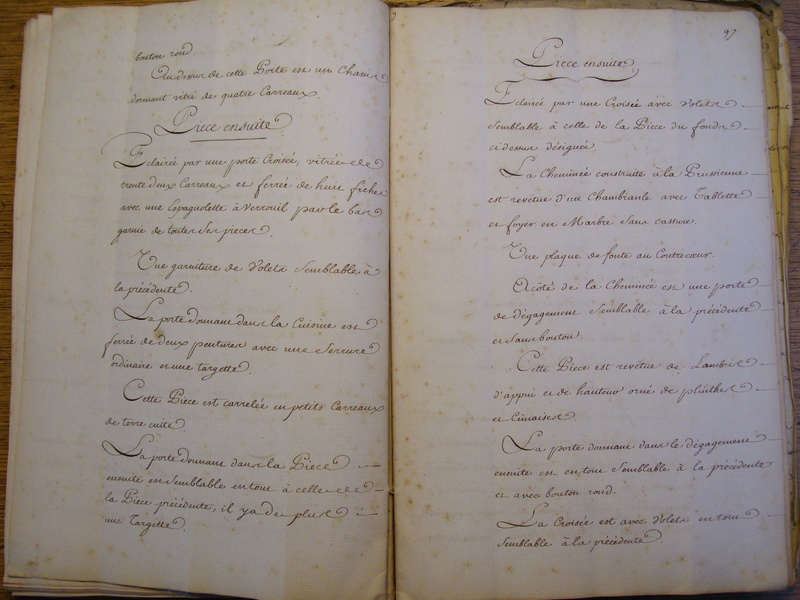 bouton rond
Au dessus de cette Porte est un Chassis
dormant vitré de quatre Carreaux
Piece ensuite
Eclairée par une porte Croisée, vitrée de
trente deux Carreaux et ferrée de huit fiches
avec une Espagnolette à Verrouil par le bas
garnie de toutes ses pieces.
Une garniture de Volets semblable à
la précédente.
La porte donnant dans la Cuisine est
ferrée de deux pentures avec une Serrure
ordinaire et une targette.
Cette Piece est carrelée en petits Carreaux
de terre cuite.
La porte donnant dans la Piece
ensuite est semblable en tout à celle de
la Piece précédente, il y a de plus
une Targette.
97
Piece ensuite
Eclairée par une Croisée avec Volets
semblable à celle de la Piece du fond
ci dessus désignée.
La Cheminée construite à la Prussienne
est revêtue d'un Chambranle avec Tablette
et foyer en Marbre sans cassure.
Une plaque de fonte au Contrecoeur.
A côté de la Cheminée est une porte
de dégagement semblable à la précédente
et sans bouton.
Cette Piece est revêtue de Lambris
d'appui et de hauteur orné de plinthes
et Cimaises.
La porte donnant dans le dégagement
ensuite est en tout semblable à la précédente
et avec bouton rond.
La Croisée est avec Volets en tout
semblable à la précédente.